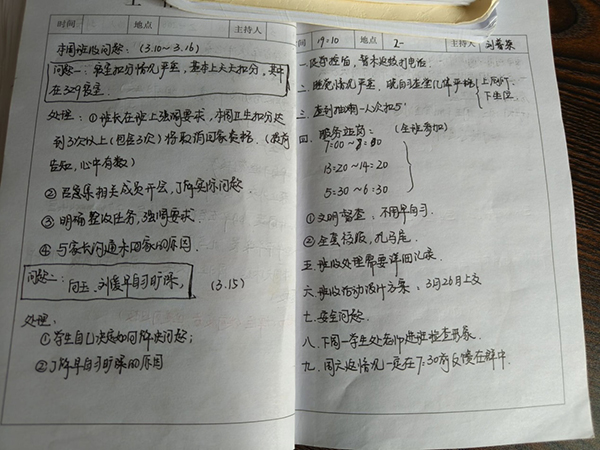 时间 地点 主持人
本周班级问题：（3.10～3.16）
问题一：卫生扣分情况严重，基本上天天扣分，集中
在329寝室.
处理：①班长在班上强调要求，本周卫生扣分达
到3次以上（包含3次）将取消回家资格.（提前
告知，心中有数）
②召集相关成员开会，了解实际问题
③明确整改任务，强调要求.
④与家长沟通未回家的原因.
问题二： 刘爱早自习旷课， （3.15）
处理：
①学生自己决定如何解决问题；
②了解早自习旷课的原因
时间 19:10 地点 2- 主持人
一.
二. 睡觉情况严重，晚自习
三. 查到抽烟一人次扣5
四. 服务站岗：（全班参加）
7:00～8:30
13:20～14:20
5:30～6:30
①文明督查，不用早自习.
②全套校服，扎马尾.
五. 班级处理需要详细记录.
六. 班级活动设计方案，3月26日上交
七. 安全问题.
八. 下周一学生处老师进班检查形象.
九. 周六返情况一定在7:30前反馈在群中.